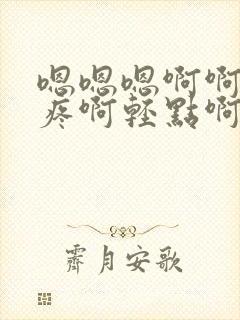 嗯嗯嗯啊啊
疼啊轻點啊
霽月安歌